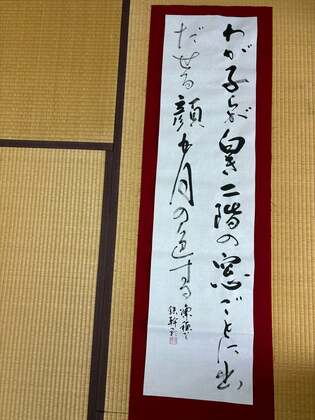 わが子らが白き二階の窓ごとに出
だせる顔も月の色する
鉄幹